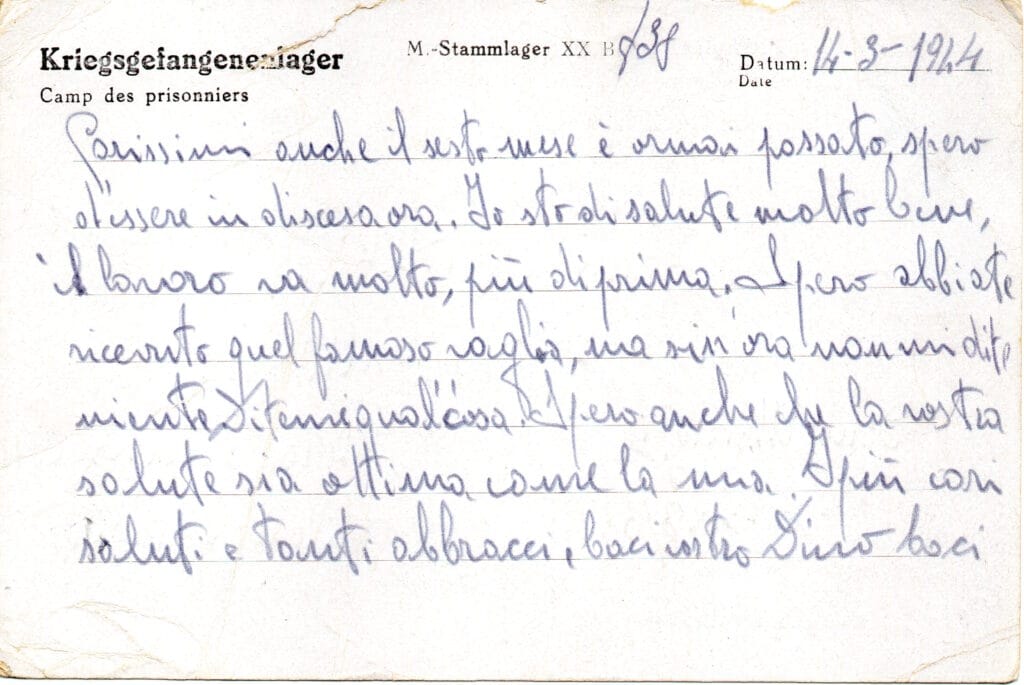 Kriegsgefangenenlager
M.-Stammlager XX B
Datum: 14-3-1944
Date
Camp des prisonniers
Carissimi anche il sesto mese è ormai passato, spero
d'essere in discesa ora. Io sto di salute molto bene,
il lavoro va molto, più di prima. Spero abbiate
ricevuto quel famoso vaglia, ma sin'ora non mi dite
niente Ditemi qualcosa. Spero anche che la vostra
salute sia ottima come la mia. I più cari
saluti e tanti abbracci, baci vostro Dino baci